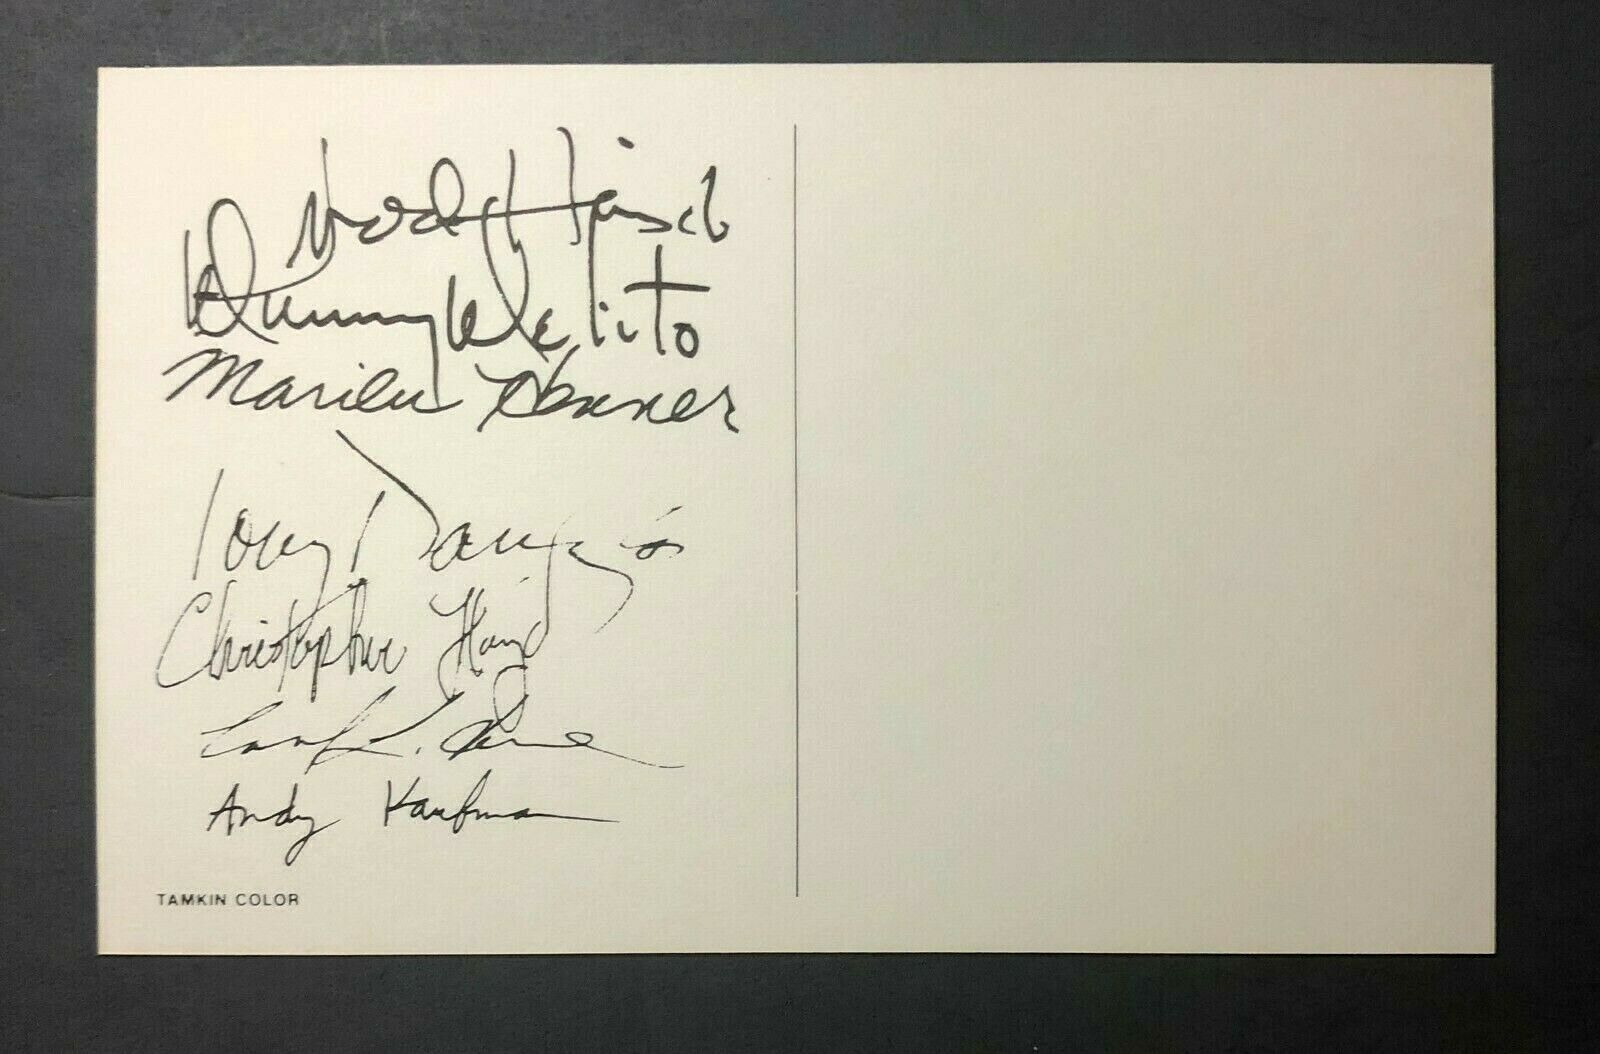 Judd Hirsch
Danny DeVito
Marilu Henner
Tony Danza
Christopher Lloyd
Andy Kaufman
TAMKIN COLOR